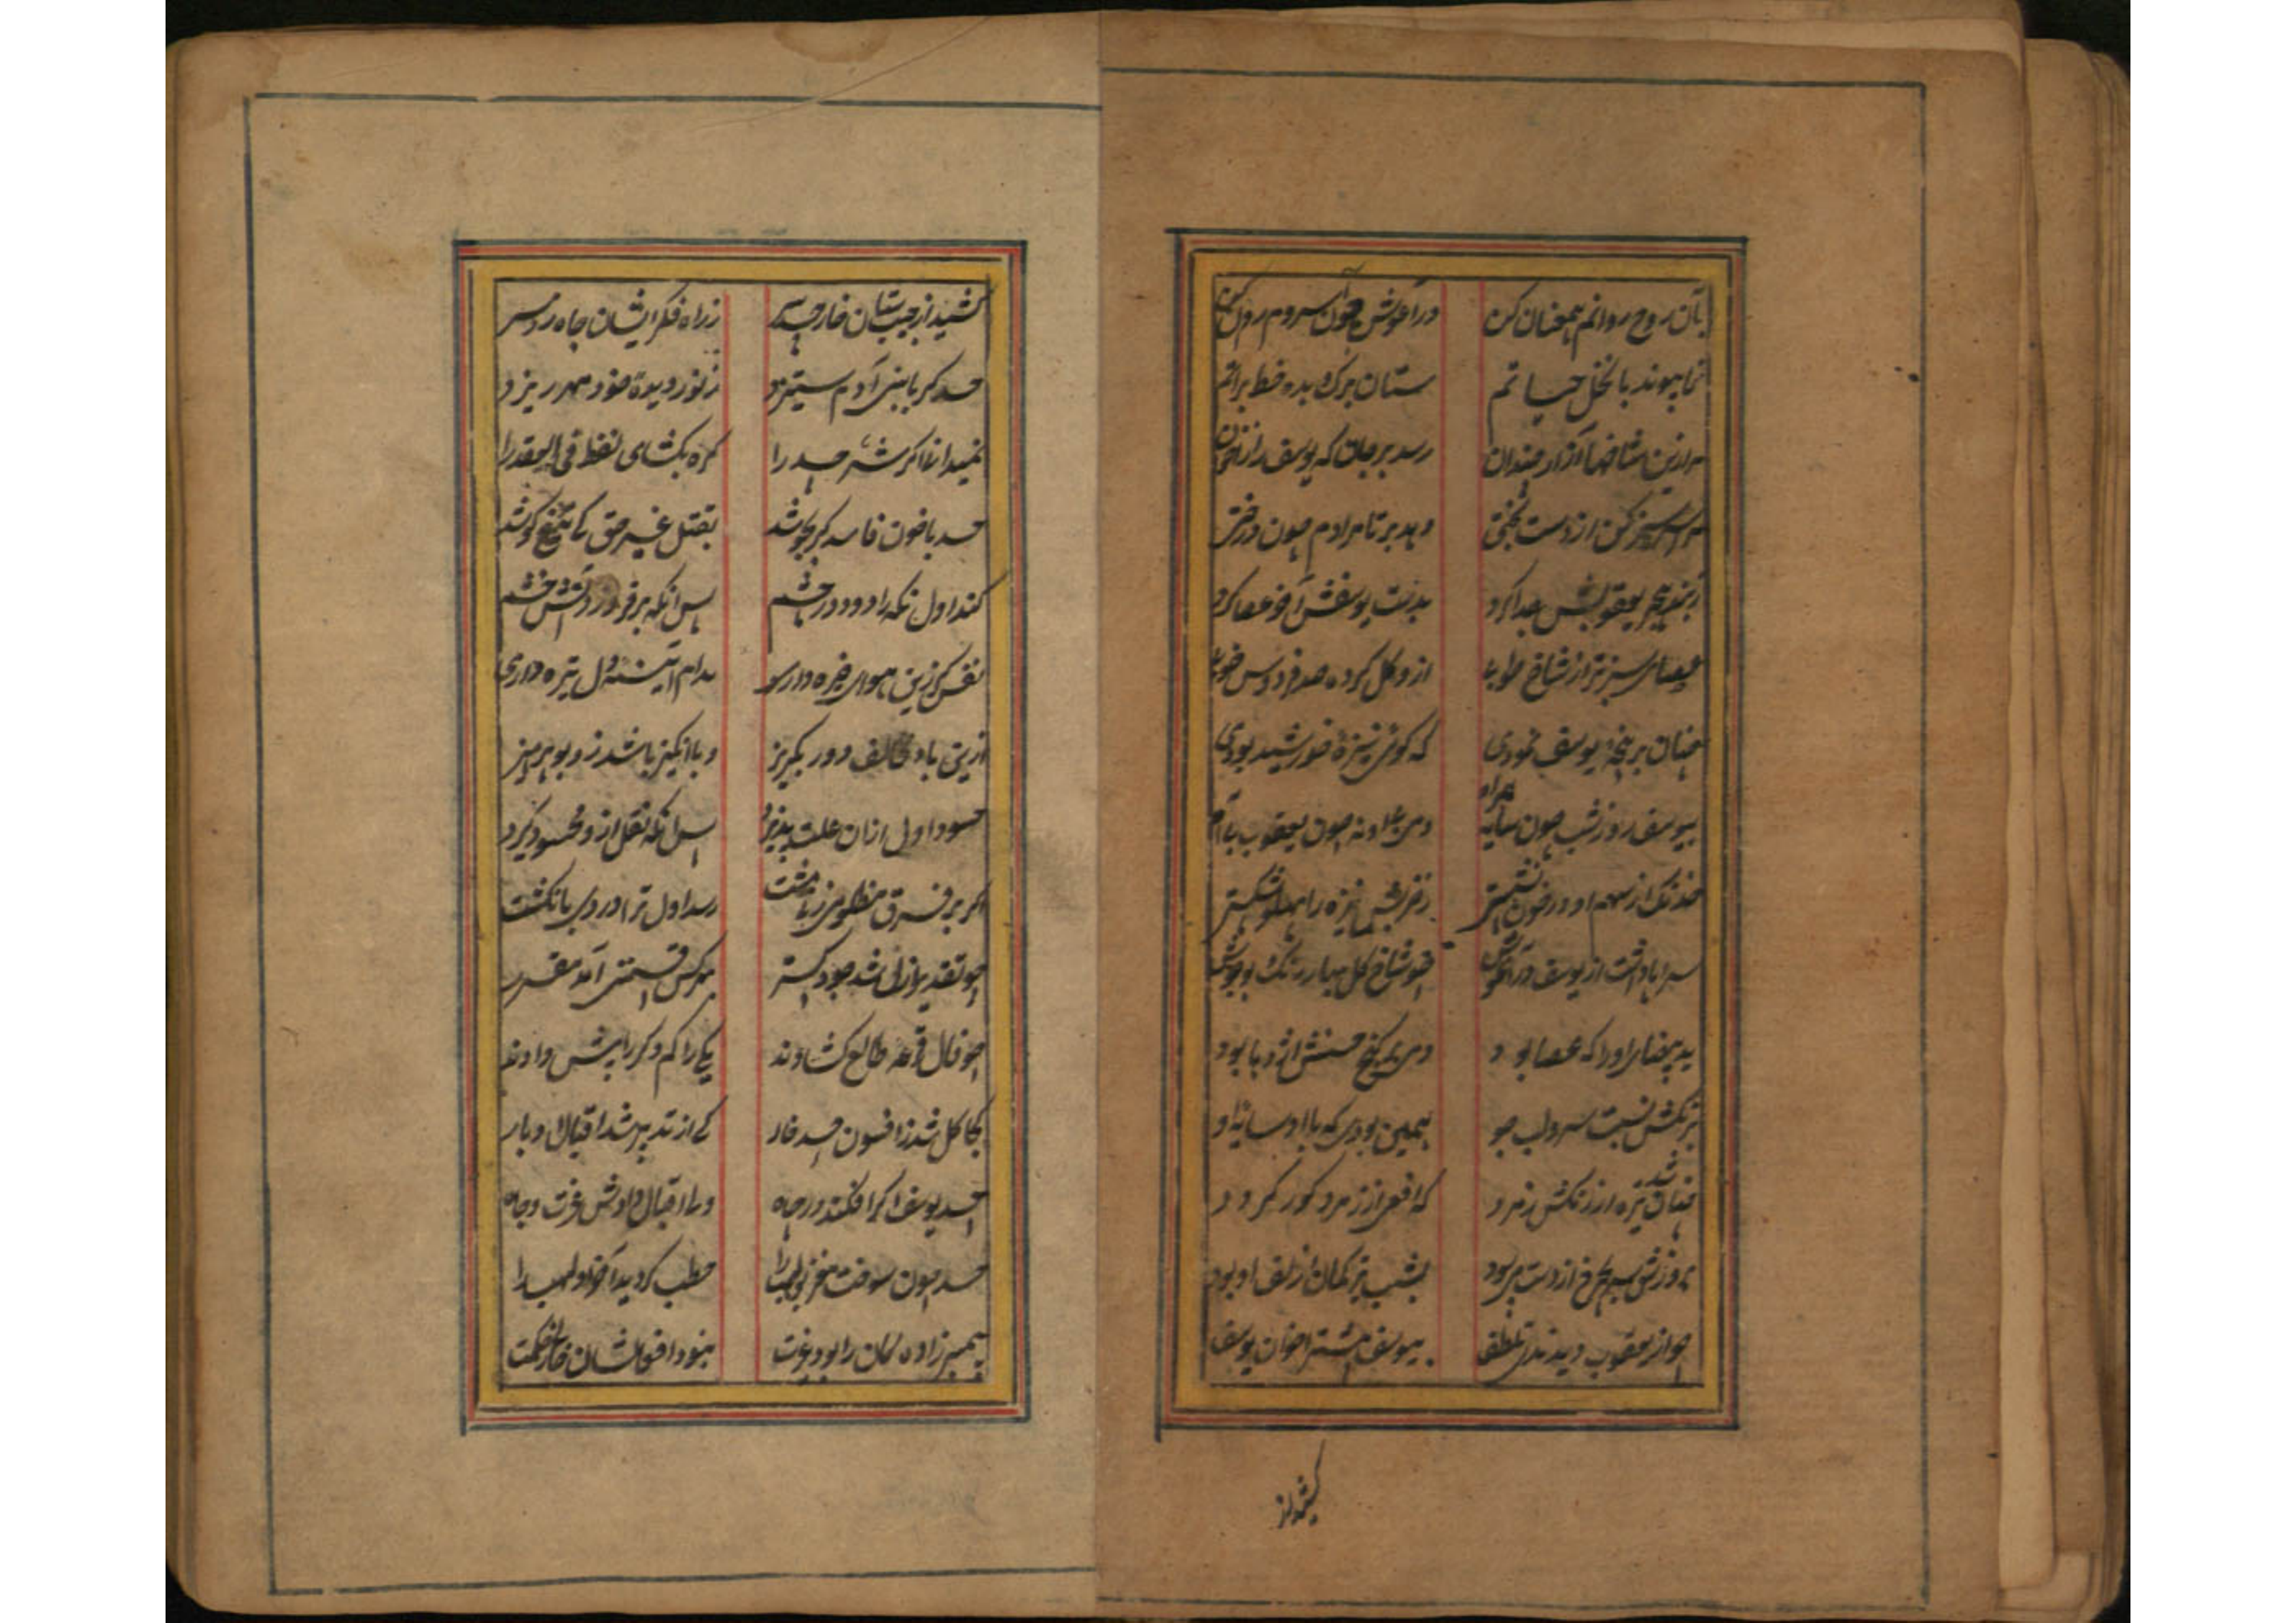 بآن روح روانم همعنان کن در آغوش چون سروم روان کن
نما پیوند با نخل حیاتم ستان برک و بده خط براتم
سر ازین شاخها آزار چندان رسد بر جان که یوسف را ز اخوان
سرسبز کن از دست بختی دهد بر تا مرادم چون درختی
یعقوبش جدا کرد بدست یوسفش آخر عصا کرد
عصای سبزتر از شاخ طوبی ازو کل کرده صد فردوس خوبی
چنان بر پنجه یوسف نمودی که کوئی نیزه خورشید بودی
بیوسف روز و شب چون سایه همراه ولی با او نه چون یعقوب با آه
خدنک از سهم او در خون نشستی نیزه را پهلو شکستی
سراپا داشت از یوسف در آغوش چو شاخ کل بهار رنک
ید بیضای او را که عصا بود ولی بر کنج حسنش اژدها بود
نسبت سرو لب جو همین بودی که با او سایه او
چنان تیره شد از رنکش زمرد که افعی از زمرد کور کردد
بروز چرخ از دست بشب تیر کمان از زلف او بود
چو از یعقوب دیدند تلطف بیوسف بیشتر اخوان یوسف
کشید از
کشید از جیبشان خار حسد سر ز راه فکر ایشان چاه زد سر
حسد کر با بنی آدم ستیزد ز نور دیده خود مهر ریزد
نمیدانی اکر شر حسد را کره بکشای لفظ فی العقد را
حسد با خون فاسد کر بجوشد بقتل غیر حق کی تیغ کوشد
کند اول نکه را دود در چشم پس آنکه برفروزد آتش خشم
نفس کر زین هوای خیره داری مدام آئینه دل تیره داری
ازین باد مخالف دور بکریز وبا انکیز باشد زو بپرهیز
حسود اول ازان علت پذیرد پس آنکه نقل ازو محسود کیرد
اکر بر فرق مظلومی زنی مشت رسد اول ترا دردی بانکشت
چو تقدیر ازل شد جود کستر بهر کس قسمتی آمد مقرر
چو فال قرعه طالع کشادند یکی را کم دکر را بیش دادند
کجا کل شد ز افسون حسد خار کی از تدبیر شد اقبال ادبار
حسد یوسف اکر افکند در چاه ولی اقبال دادش عزت و جاه
حسد چون سوخت مغز بولهب را حطب کردید آخر
پیمبر زاده کان را بود رغبت نبود افعالشان خالی ز حکمت